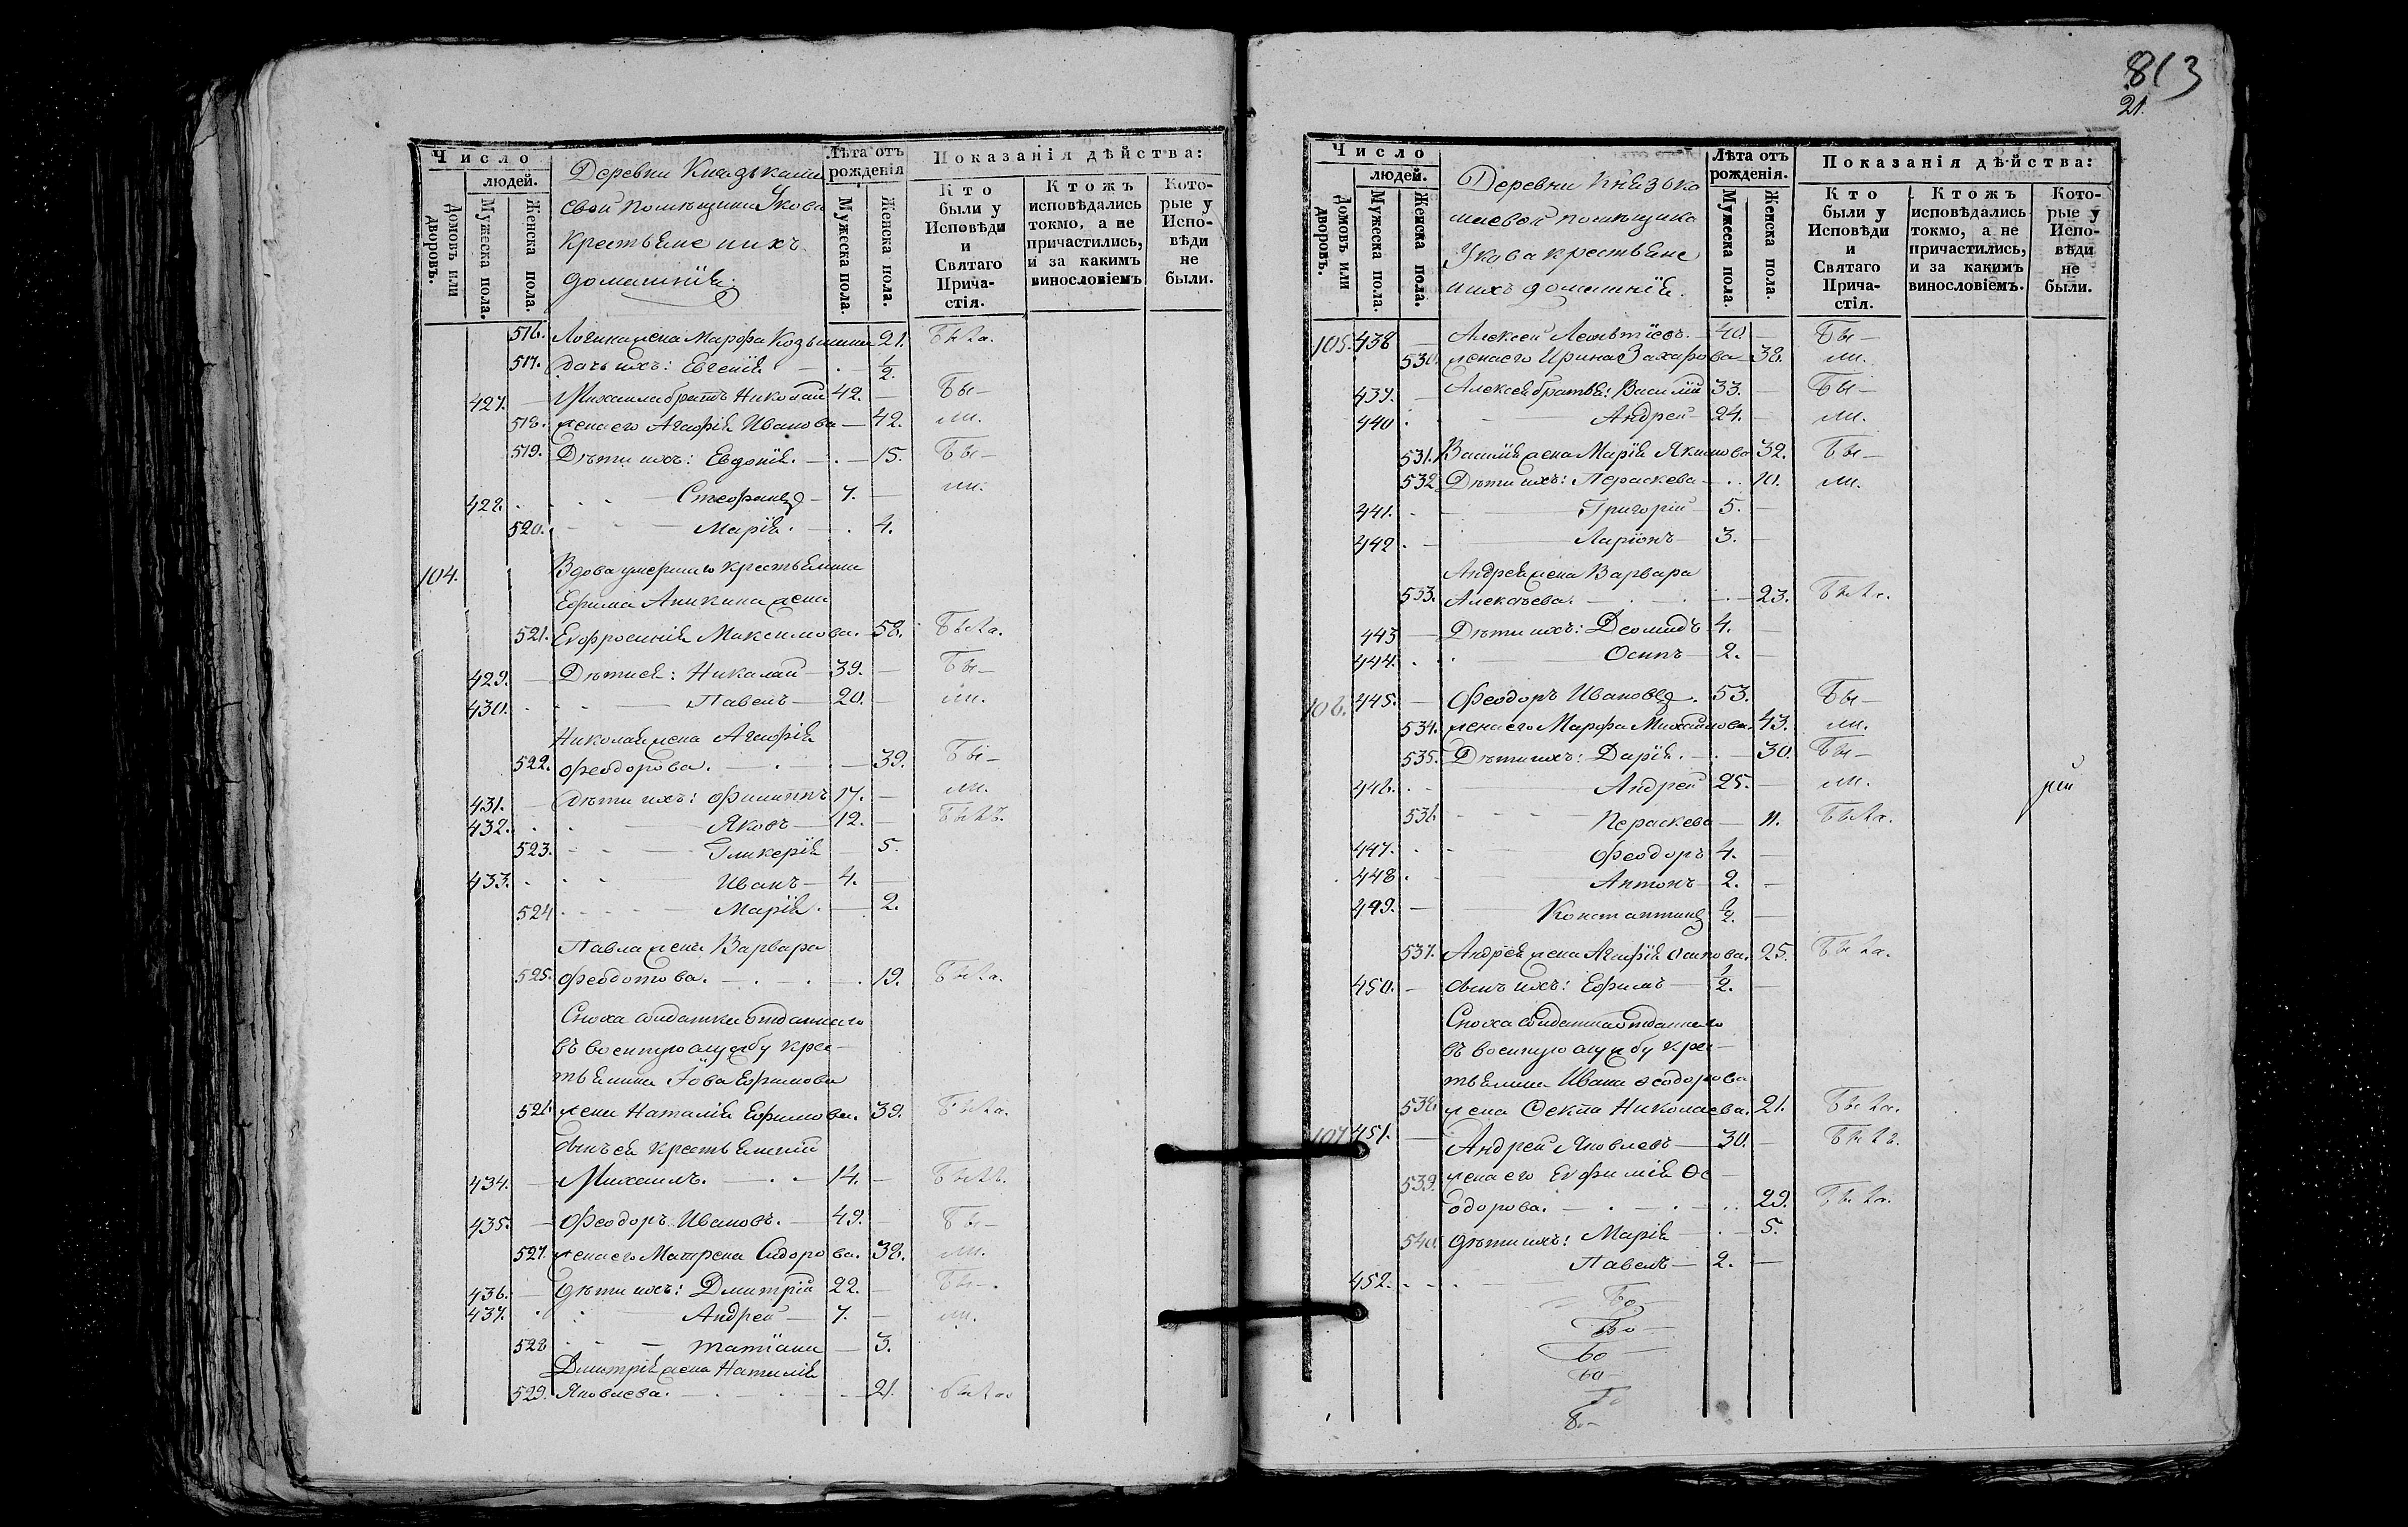 813
21.
Число
людей.
Домовъ или дворовъ.
Мужеска пола.
Женска пола.
Деревни
свой помѣщика Укова
крестьяне ихъ
домашнія:
Лѣта отъ рожденія
Мужеска пола.
Женска пола.
Показанія дѣйства:
Кто были у Исповѣди и Святаго Причастія.
Ктожъ исповѣдались токмо, а не причастились, и за какимъ винословіемъ
Которые у Исповѣди не были.
516. Логина жена Марѳа Козьмина 21. Была.
517. дочь ихъ: Евгенія — . — 1/2.
427. — Михаила братъ Николай 42. — Бы—
518. жена его Агафія Иванова — 42. ли.
519. Дѣти ихъ: Евдокія. — . — 15. Бы—
428. . . — Стефанъ — 7. — ли.
520. . — Марія. — . 4.
104. Вдова умершаго крестьянина
Ефима Аникина жена
521. Евфросинія Максимова. — 58. Была.
429. — Дѣти ея: Николай — 39. — Бы—
430. . . — Павелъ — 20. — ли.
Николая жена Агафія
522. Феодорова. — . — . — 39. Бы—
431. — Дѣти ихъ: Филиппъ 17. — ли.
432. . . — Яковъ — 12. — Былъ.
523. . — Гликерія — 5.
433. . . — Иванъ — 4. —
524. . — Марія. — 2.
Павла жена Варвара
525. Феодотова. — . — . 19. Была.
Сноха солдатка отданнаго
въ военную службу крес—
тьянина Іова Ефимова
526. жена Наталія Ефимова. 39. Была.
сынъ ея крестьянинъ
434. — Михаилъ. — . — 14. — Былъ.
435. — Феодоръ Ивановъ. — 49. — Бы—
527. жена его Матрена Сидорова. 38. ли.
436. — Дѣти ихъ: Дмитрій 22. — Бы—
437. . : — Андрей — 7. — ли.
528 . — Татіана — 3.
Дмитрія жена Наталія
529. Яковлева. — . — 21. Была
Число
людей.
Домовъ или дворовъ.
Мужеска пола.
Женска пола.
Деревни Князько
шевой помѣщика
Укова крестьяне
ихъ домашнія.
Лѣта отъ рожденія.
Мужеска пола.
Женска пола.
Показанія дѣйства:
Кто были у Исповѣди и Святаго Причастія.
Ктожъ исповѣдались токмо, а не причастились, и за какимъ винословіемъ.
Которые у Исповѣди не были.
105. 438 — Алексей Леонтіевъ. — 40. — Бы—
530. жена его Ирина Захарова — 38. ли.
439. — Алексея братья: Василій 33. — Бы—
440 . — Андрей — 24. — ли.
531. Василія жена Марія Якимова 32. Бы—
532. Дѣти ихъ: Пераскева — . . 10. ли.
441. . — Григорій — 5. —
442 . — Ларіонъ — 3. —
Андрея жена Варвара
533. Алексѣева. — . — . — 23. Была.
443 — Дѣти ихъ: Деомидъ 4. —
444. . . — Осипъ — 2. —
106. 445. — Феодоръ Ивановъ. 53. Бы—
534. жена его Марѳа Михайлова. 43. ли.
535. Дѣти ихъ: Дарія. — . — 30. Бы—
446. . — Андрей 25. — ли.
536. — Пераскева — 11. Была.
447. . — Феодоръ 4. —
448 . — Антонъ — 2. —
449. — Константинъ 1/2. —
537. Андрея жена Агафія Осипова. 25. Была.
450. — сынъ ихъ: Ефимъ — 1/2. —
Сноха солдатка отданнаго
въ военную службу крес—
тьянина Ивана Феодорова
538 жена Фекла Николаева. 21. Была.
107 451. — Андрей Яковлевъ — 30. — Былъ.
539. жена его Евфимія Ѳе—
одорова. — . — . 29. Была.
540. Дѣти ихъ: Марія — . — 5.
452. . — Павелъ — 2. —
рей